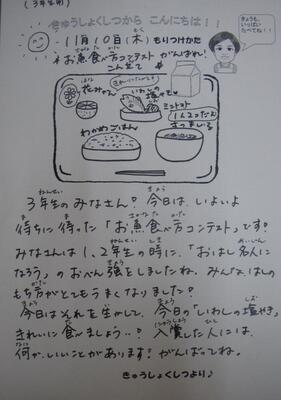 (3年生用)
きゅうしょくしつから こんにちは!!
きょうも、
いっぱい
たべてね!!
11月10日(木) もりつけかた
お魚食べ方コンテスト がんばれ!
こん立て
花みかん
いわしの塩やき
ミニトマト
1人2こだよ
わかめごはん
さつまじる
3年生のみなさん? 今日は、いよいよ
待ちに待った「お魚食べ方コンテスト」です!
みなさんは1、2年生の時に、「おはし名人に
なろう」のおべん強をしましたね。みんなはしの
もち方がとてもうまくなりました?
今日はそれを生かして、今日の「いわしの塩やき」
きれいに食べましょう…? 入賞した人には、
何か、いいことがあります? がんばってね。
きゅうしょくしつより♪